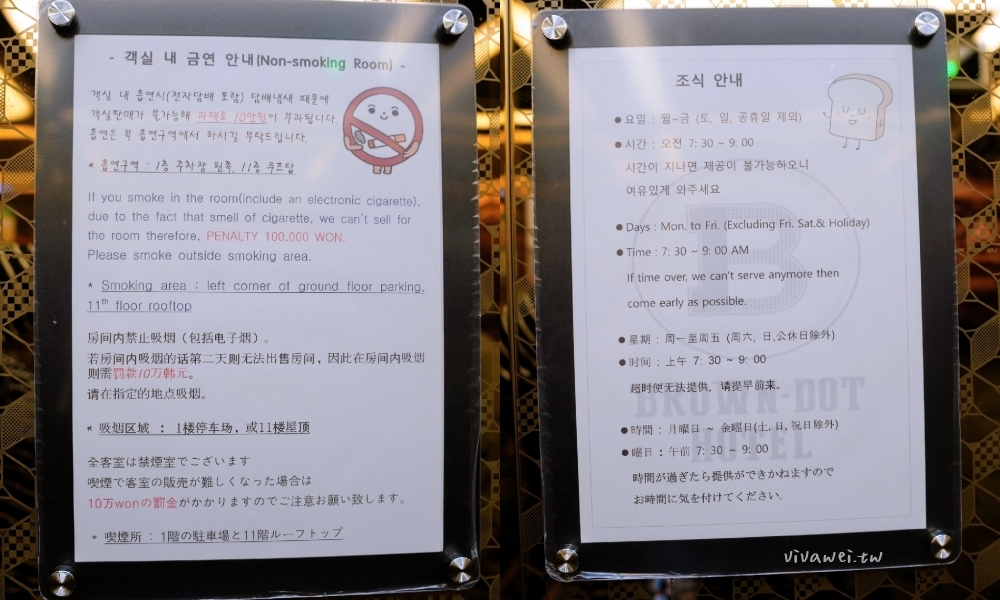 - 객실 내 금연 안내(Non-smoking Room) -
객실 내 흡연시(전자담배 포함) 담배냄새 때문에
객실판매가 불가능해 과태료 10만원이 부과됩니다.
흡연은 꼭 흡연구역에서 하시길 부탁드립니다.
* 흡연구역 : 1층 주차장 왼쪽, 11층 루프탑
If you smoke in the room(include an electronic cigarette),
due to the fact that smell of cigarette, we can't sell for
the room therefore, PENALTY 100,000 WON.
Please smoke outside smoking area.
* Smoking area : left corner of ground floor parking,
11th floor rooftop
房间内禁止吸烟（包括电子烟）。
若房间内吸烟的话第二天则无法出售房间，因此在房间内吸烟
则需罚款10万韩元。
请在指定的地点吸烟。
* 吸烟区域 ： 1楼停车场，或11楼屋顶
全客室は禁煙室でございます
喫煙で客室の販売が難しくなった場合は
10万wonの罰金がかかりますのでご注意お願い致します。
* 喫煙所 : 1階の駐車場と11階ルーフトップ
조식 안내
● 요일 : 월-금 (토, 일, 공휴일 제외)
● 시간 : 오전 7: 30 ~ 9: 00
시간이 지나면 제공이 불가능하오니
여유있게 와주세요
● Days : Mon. to Fri. (Excluding Fri. Sat.& Holiday)
● Time : 7: 30 ~ 9: 00 AM
If time over, we can't serve anymore then
come early as possible.
● 星期 : 周一至周五 (周六, 日,公休日除外)
● 时间 : 上午 7: 30 ~ 9: 00
超时便无法提供，请提早前来。
● 時間 : 月曜日 ~ 金曜日(土, 日, 祝日除外)
● 曜日 : 午前 7: 30 ~ 9: 00
時間が過ぎたら提供ができかねますので
お時間に気を付けてください。
B
BROWN-DOT
HOTEL
vivawei.tw